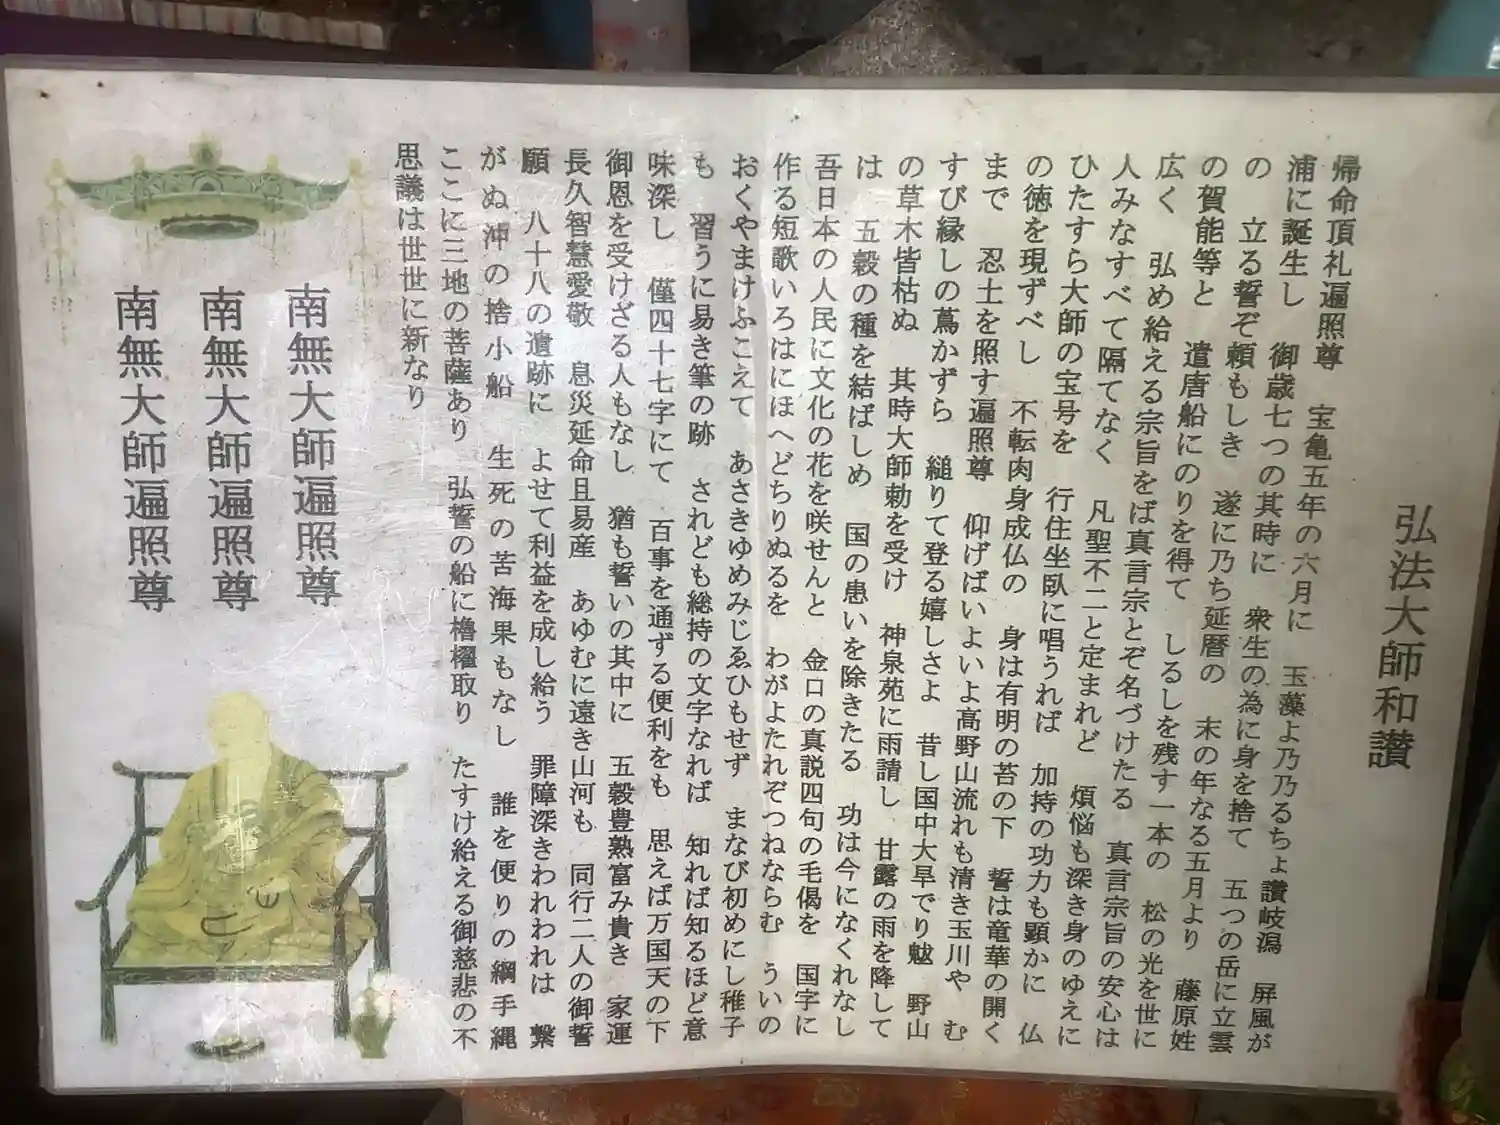 弘法大師和讃
帰命頂礼遍照尊　宝亀五年の六月に　玉藻よ乃乃るちょ讃岐潟　屏風が
浦に誕生し　御歳七つの其時に　衆生の為に身を捨て　五つの岳に立雲
の　立る誓ぞ頼もしき　遂に乃ち延暦の　末の年なる五月より　藤原姓
の賀能等と　遣唐船にのりを得て　しるしを残す一本の　松の光を世に
広く　弘め給える宗旨をば真言宗とぞ名づけたる　真言宗旨の安心は
人みなすべて隔てなく　凡聖不二と定まれど　煩悩も深き身のゆえに
ひたすら大師の宝号を　行住坐臥に唱うれば　加持の功力も顕かに　仏
の徳を現ずべし　不転肉身成仏の　身は有明の苔の下　誓は竜華の開く
まで　忍土を照す遍照尊　仰げばいよいよ高野山流れも清き玉川や　む
すび縁しの蔦かずら　縋りて登る嬉しさよ　昔し国中大旱でり魃　野山
の草木皆枯ぬ　其時大師勅を受け　神泉苑に雨請し　甘露の雨を降して
は　五穀の種を結ばしめ　国の患いを除きたる　功は今になくれなし
吾日本の人民に文化の花を咲せんと　金口の真説四句の毛偈を　国字に
作る短歌いろはにほへどちりぬるを　わがよたれぞつねならむ　ういの
おくやまけふこえて　あさきゆめみじゑひもせず　まなび初めにし稚子
も　習うに易き筆の跡　されども総持の文字なれば　知れば知るほど意
味深し　僅四十七字にて　百事を通ずる便利をも　思えば万国天の下
御恩を受けざる人もなし　猶も誓いの其中に　五穀豊熟富み貴き　家運
長久智慧愛敬　息災延命且易産　あゆむに遠き山河も　同行二人の御誓
願　八十八の遺跡に　よせて利益を成し給う　罪障深きわれわれは　繋
がぬ沖の捨小船　生死の苦海果もなし　誰を便りの綱手縄
ここに三地の菩薩あり　弘誓の船に櫓櫂取り　たすけ給える御慈悲の不
思議は世世に新なり
南無大師遍照尊
南無大師遍照尊
南無大師遍照尊